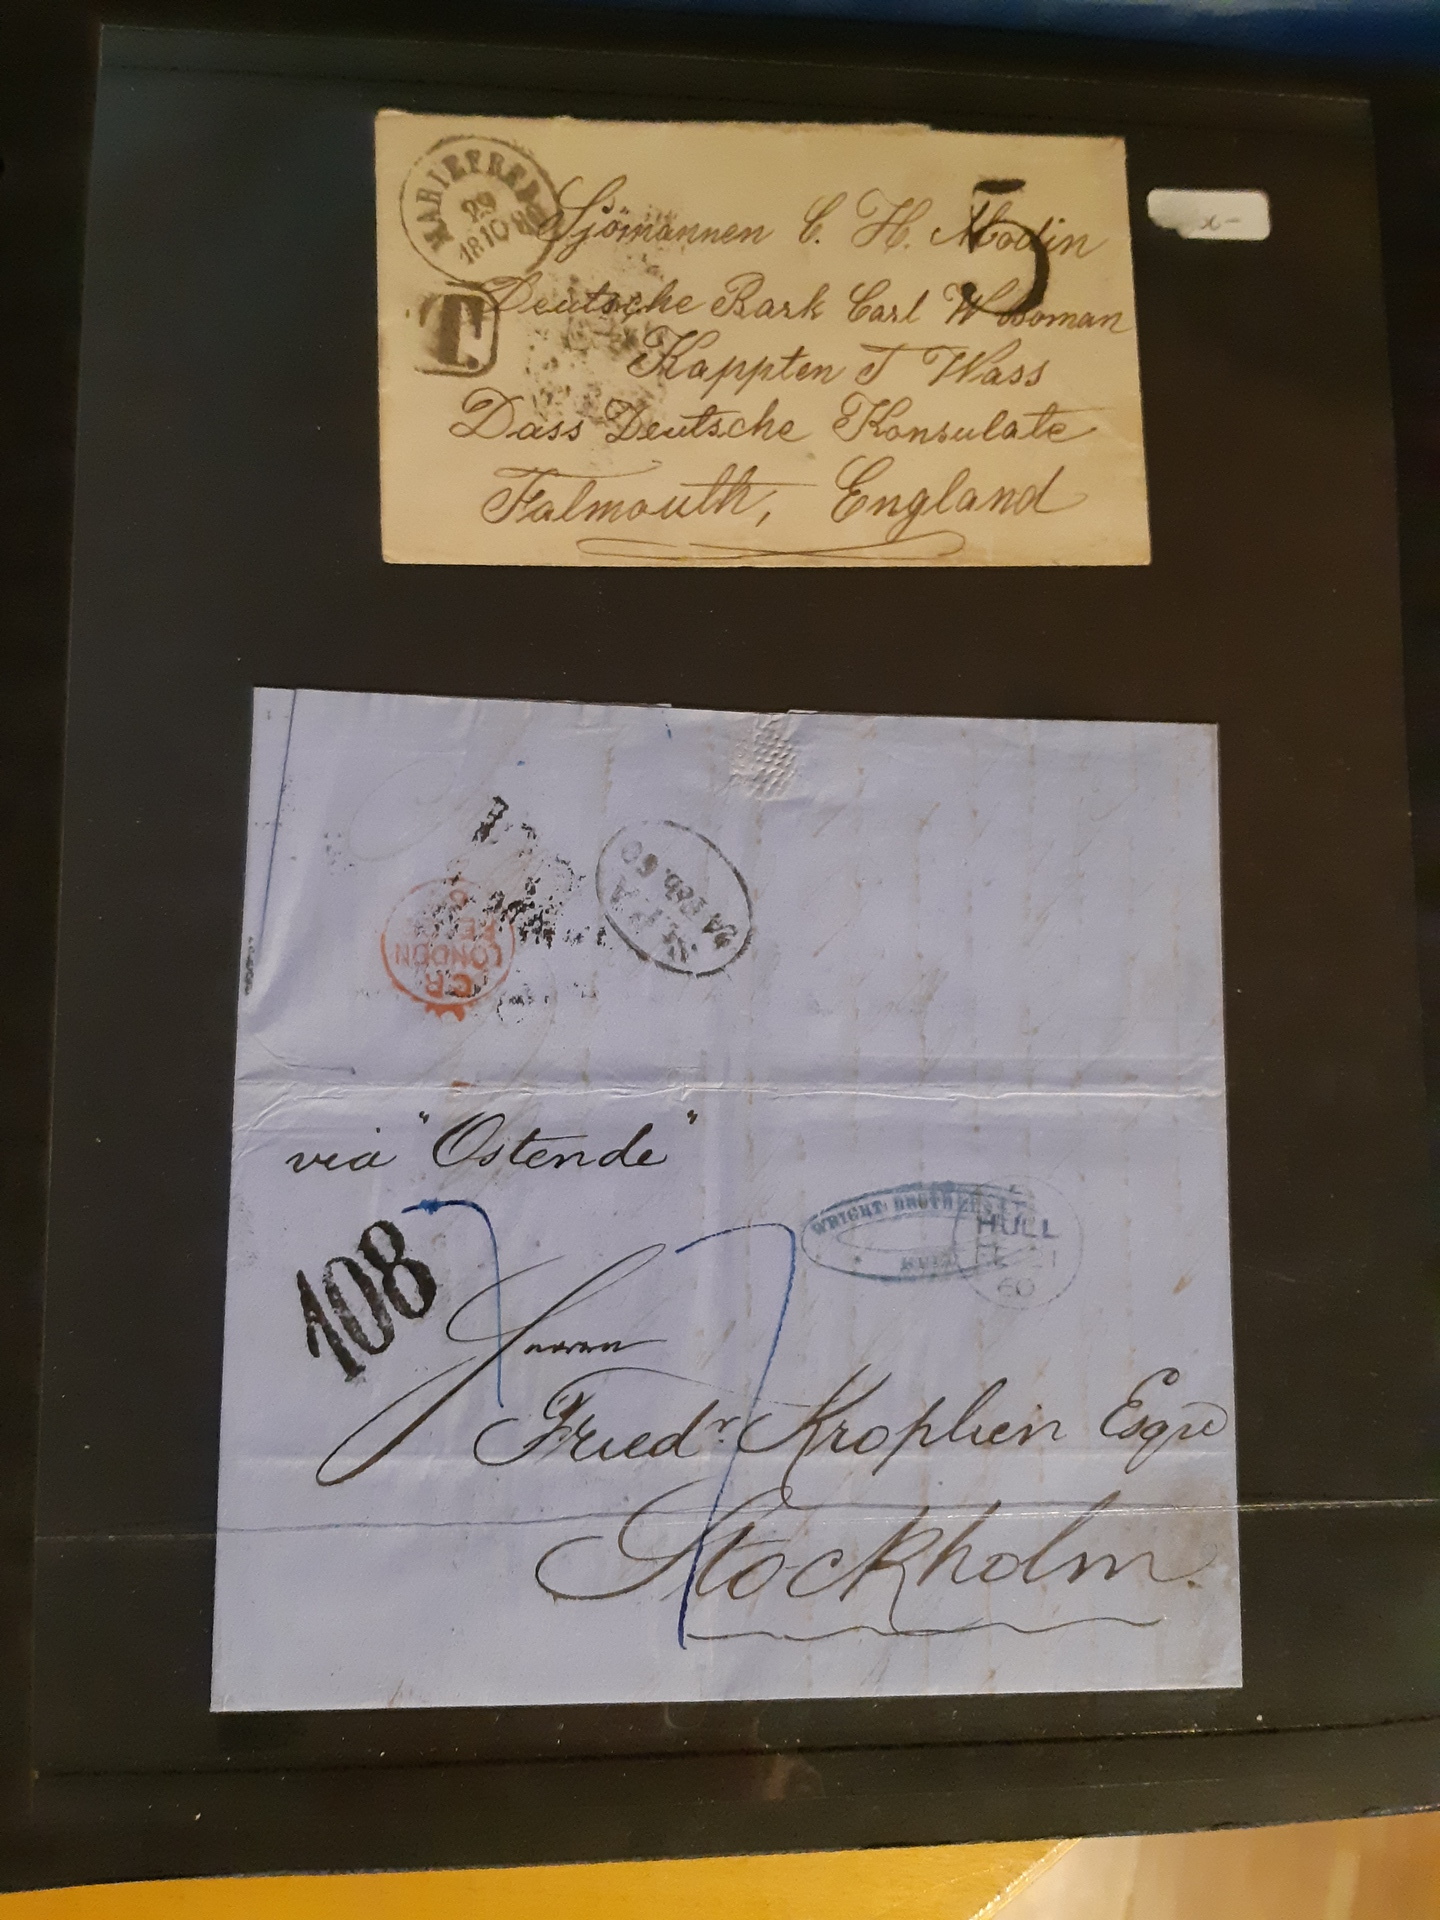 MARIEFRED
29
18 10
T.
5
Sjömannen C. H. Modin
Deutsche Bark Carl
Kappten T Wass
Dass Deutsche Konsulate
Falmouth, England
24 Feb. 60
LONDON
via "Ostende"
108
WRIGHT BROTHERS
HULL
HULL
60
Herrn
Friedr. Krophien Esqre
Stockholm